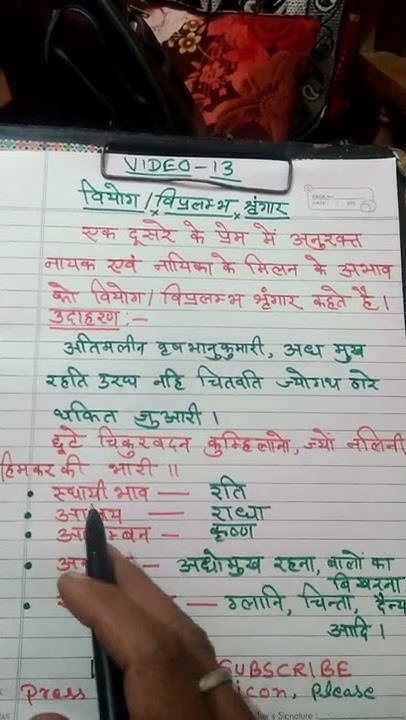 VIDEO-13
वियोग / विप्रलम्भ श्रृंगार
एक दूसरे के प्रेम में अनुरक्त
नायक एवं नायिका के मिलन के अभाव
को वियोग / विप्रलम्भ श्रृंगार कहते है।
उदाहरण :-
अतिमलीन वृषभानुकुमारी, अध मुख
रहति उरध नहि चितवति ज्योगथ हारे
थकित जुआरी ।
छूटे चिकुरवदन कुम्हिलाने, ज्यों नलिनी
हिमकर की मारी ॥
• स्थायी भाव — रति
• — राधा
• — कृष्ण
• — अधोमुख रहना, बालों का
बिखरना
• — ग्लानि, चिन्ता, दैन्य
आदि ।
SUBSCRIBE
Press icon, please